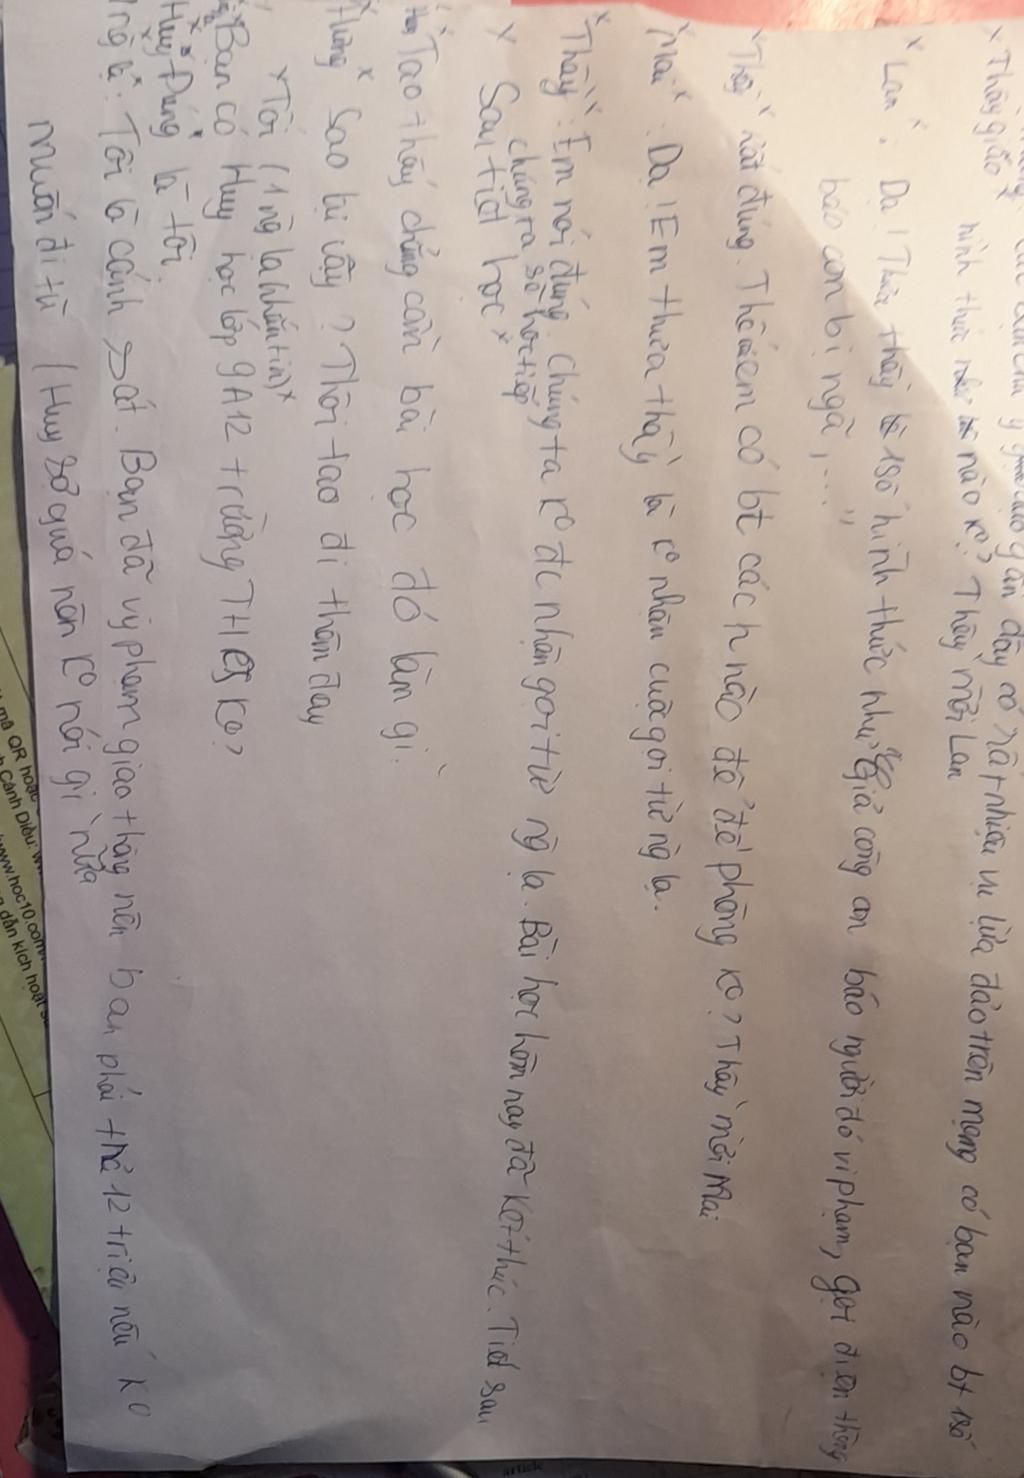 x Thầy giáo x
gần đây có rất nhiều vụ lừa đảo trên mạng có bạn nào bt 1 số
hình thức nào ko? Thầy mời Lan
x Lan x: Dạ! Thưa thầy 1 số hình thức như giả công an báo người đó vi phạm, gọi điện thông
báo con bị ngã,..."
x Thầy x rất đúng. Thế các em có bt các h nào để đề phòng ko? Thầy mời Mai
x Mai x: Dạ! Em thưa thầy là ko nhận cuộc gọi từ ng lạ.
x Thầy x: Em nói đúng. Chúng ta ko đc nhận gọi từ ng lạ. Bài học hôm nay đã kết thúc. Tiết sau
chúng ta sẽ học tiếp
x Sau tiết học x
Tao thấy chẳng cần bài học đó làm gì
x Sao lại vậy? Thôi tao đi thăm đay
x Tối (1 ng lạ nhắn tin) x
Bạn có Huy học lớp 9A12 trường THCS ko?
Huy x Đúng là tôi.
ng lạ: Tôi là cảnh sát. Bạn đã vi phạm giao thông nên bạn phải trả 12 triệu nếu ko
muốn đi tù (Huy sợ quá nên ko nói gì nữa
mã QR hoặc
Cánh Diều: w
www.hoc10.com
dẫn kích hoạt
article